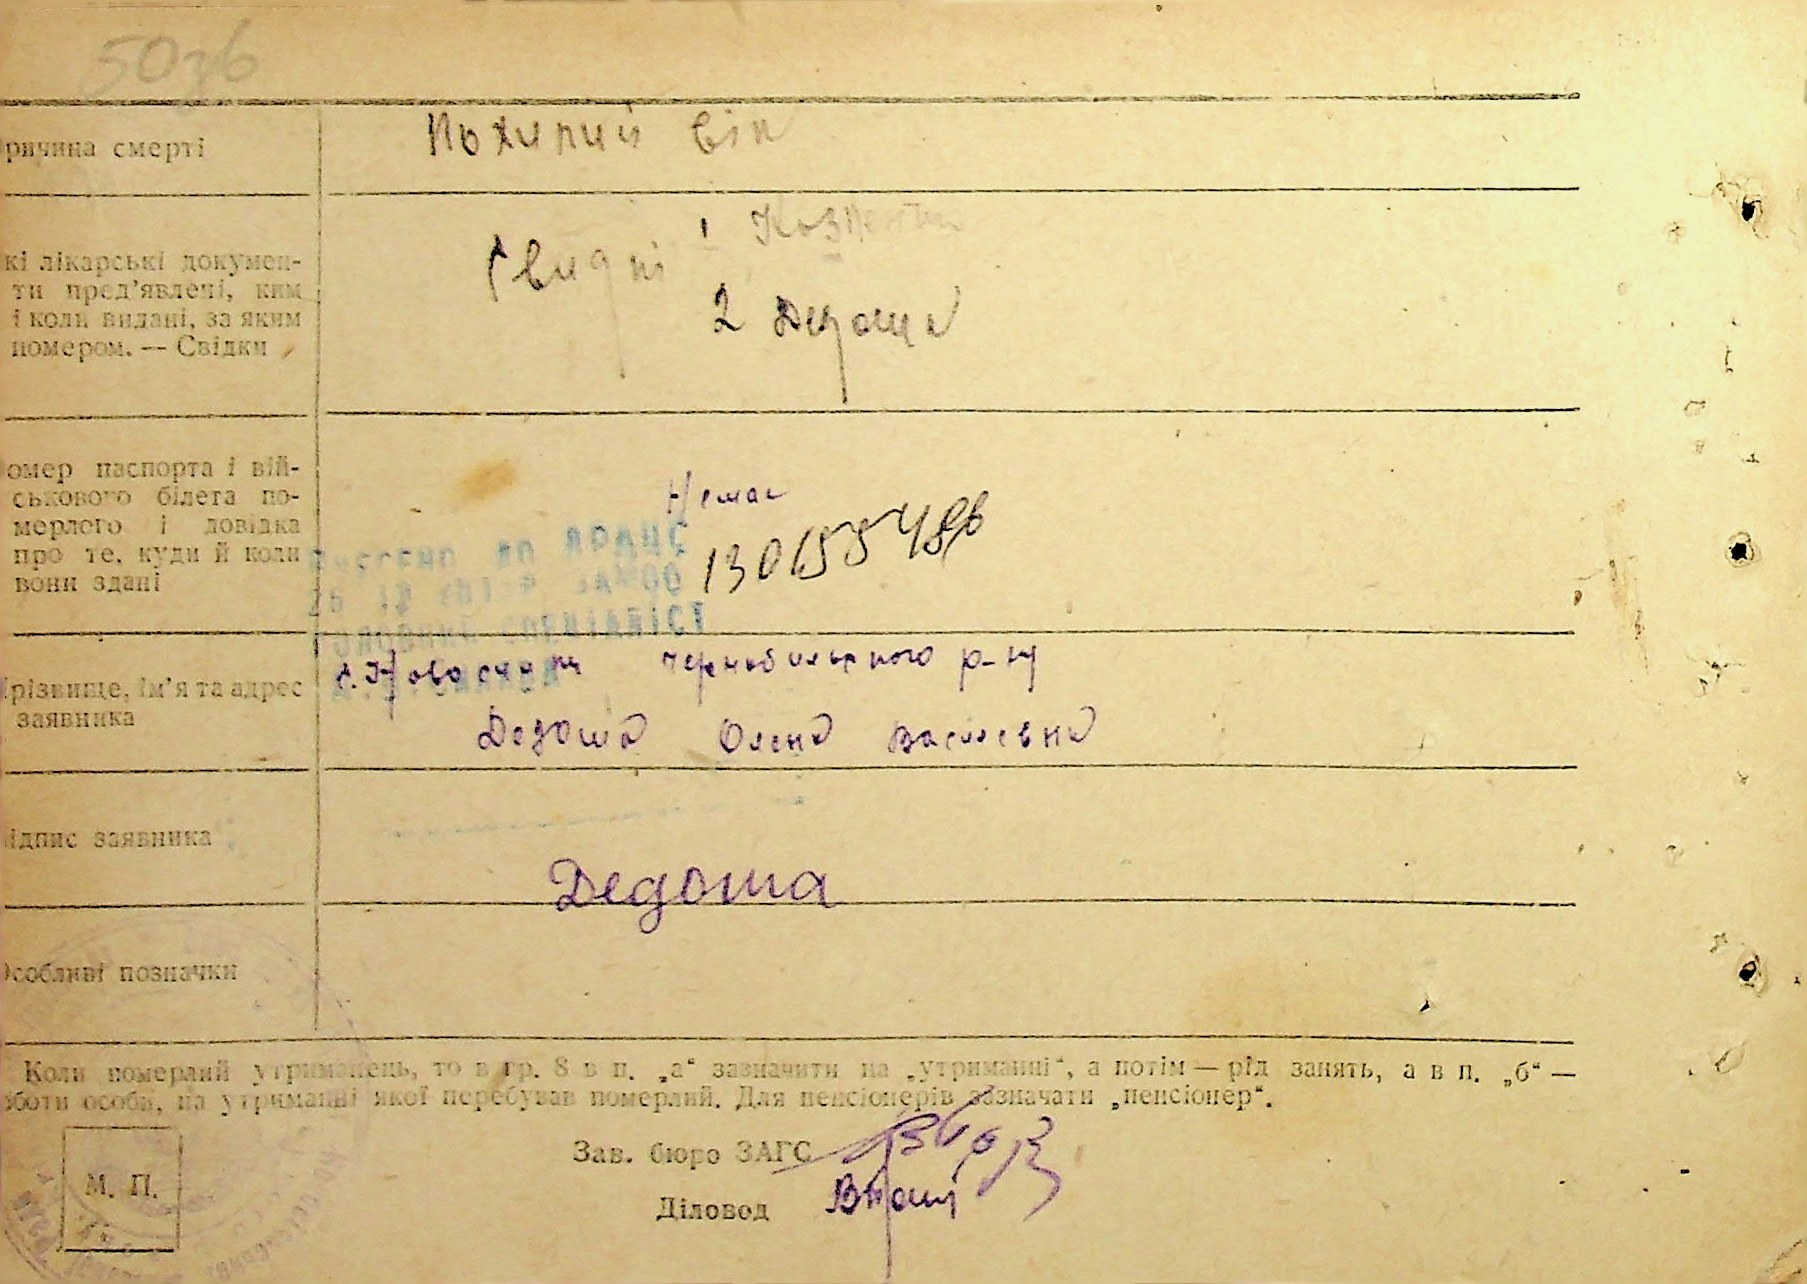 5036
ричина смерті
Похилий вік
кі лікарські докумен-
ти пред'явлені, ким
і коли видані, за яким
номером. — Свідки
Свидкі 1
2 Дедоша
омер паспорта і вій-
ськового білета по-
мерлого і довідка
про те, куди й коли
вони здані
Немає
ВНЕСЕНО ДО ДРАЦС
СПЕЦІАЛІСТ
різвище, ім'я та адрес
заявника
Чернобильского р-ну
Дедоша Олена Василевна
ідпис заявника
Дедоша
собливі позначки
Коли померлий утриманець, то в гр. 8 в п. „а“ зазначити на „утриманні“, а потім — рід занять, а в п. „б“ —
боти особи, на утриманні якої перебував померлий. Для пенсіонерів зазначати „пенсіонер“.
Зав. бюро ЗАГС
М. П.
Діловод